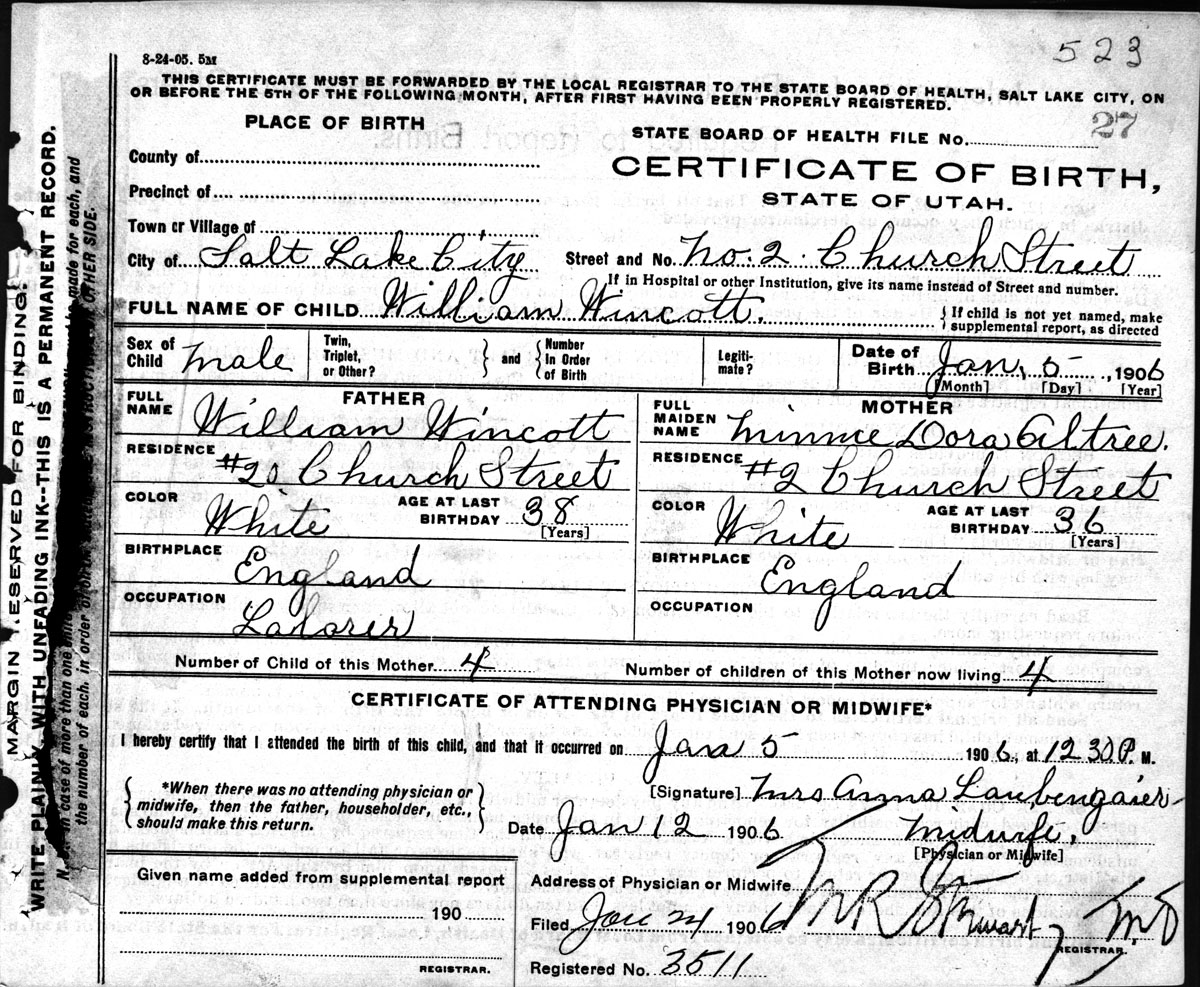 523
8-24-05. 5M
THIS CERTIFICATE MUST BE FORWARDED BY THE LOCAL REGISTRAR TO THE STATE BOARD OF HEALTH, SALT LAKE CITY, ON
OR BEFORE THE 5TH OF THE FOLLOWING MONTH, AFTER FIRST HAVING BEEN PROPERLY REGISTERED.
PLACE OF BIRTH
STATE BOARD OF HEALTH FILE No. 27
County of
CERTIFICATE OF BIRTH,
Precinct of
STATE OF UTAH.
Town or Village of
City of Salt Lake City Street and No. No. 2. Church Street
If in Hospital or other Institution, give its name instead of Street and number.
FULL NAME OF CHILD William Wincott. { If child is not yet named, make supplemental report, as directed
Sex of Child male Twin, Triplet, or Other? } and { Number In Order of Birth Legiti- mate? Date of Birth Jan. 5 , 1906
[Month] [Day] [Year]
FATHER
FULL NAME William Wincott
RESIDENCE #20 Church Street
COLOR White AGE AT LAST BIRTHDAY 38 [Years]
BIRTHPLACE England
OCCUPATION Laborer
MOTHER
FULL MAIDEN NAME Minnie Dora Altree.
RESIDENCE #2 Church Street
COLOR White AGE AT LAST BIRTHDAY 36 [Years]
BIRTHPLACE England
OCCUPATION
Number of Child of this Mother 4 Number of children of this Mother now living 4
CERTIFICATE OF ATTENDING PHYSICIAN OR MIDWIFE*
I hereby certify that I attended the birth of this child, and that it occurred on Jan 5 1906, at 12 30 P. M.
*When there was no attending physician or
midwife, then the father, householder, etc.,
should make this return.
[Signature] Mrs Anna Laubengaier
Date Jan 12 1906 Midwife,
[Physician or Midwife]
Given name added from supplemental report
190
REGISTRAR.
Address of Physician or Midwife
Filed Jan 24 1906 Stewart M.D
REGISTRAR.
Registered No. 3511
MARGIN RESERVED FOR BINDING.
WRITE PLAINLY WITH UNFADING INK--THIS IS A PERMANENT RECORD.
in case of more than one made for each, and
the number of each, in order of OTHER SIDE.